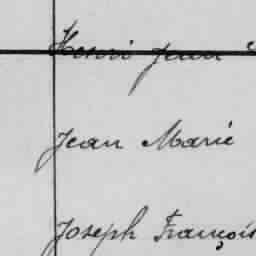 Henri Jean
Jean Marie
Joseph François